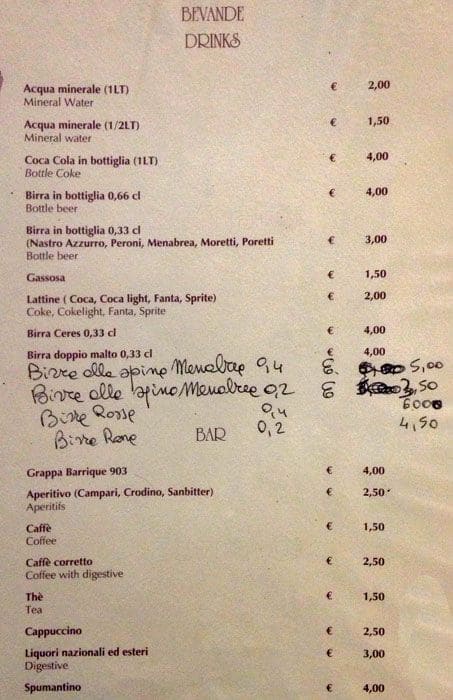 BEVANDE
DRINKS
Acqua minerale (1LT) € 2,00
Mineral Water
Acqua minerale (1/2LT) € 1,50
Mineral water
Coca Cola in bottiglia (1LT) € 4,00
Bottle Coke
Birra in bottiglia 0,66 cl € 4,00
Bottle beer
Birra in bottiglia 0,33 cl
(Nastro Azzurro, Peroni, Menabrea, Moretti, Poretti € 3,00
Bottle beer
Gassosa € 1,50
Lattine ( Coca, Coca light, Fanta, Sprite) € 2,00
Coke, Cokelight, Fanta, Sprite
Birra Ceres 0,33 cl € 4,00
Birra doppio malto 0,33 cl € 4,00
Birra alla spina Menabrea 0,4 €. 5,00
Birra alla spina Menabrea 0,2 € 3,50
Birra Rossa 0,4 6000
Birra Rossa 0,2 4,50
BAR
Grappa Barrique 903 € 4,00
Aperitivo (Campari, Crodino, Sanbitter) € 2,50
Aperitifs
Caffè € 1,50
Coffee
Caffè corretto € 2,50
Coffee with digestive
Thè € 1,50
Tea
Cappuccino € 2,50
Liquori nazionali ed esteri € 3,00
Digestive
Spumantino € 4,00